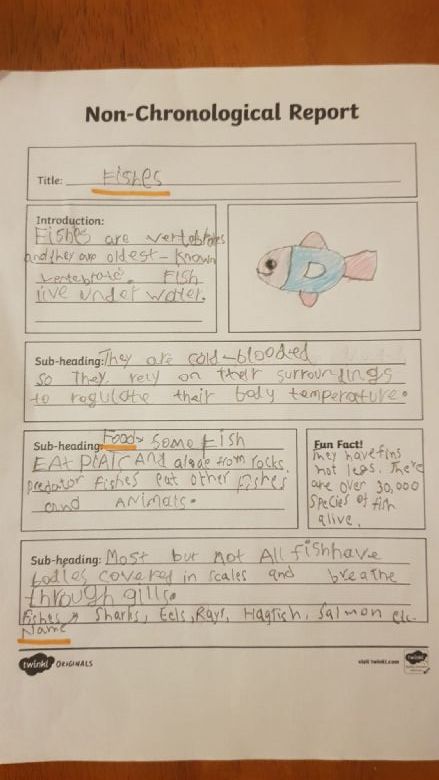 Non-Chronological Report
Title: Fishes
Introduction:
Fishes are vertebrates
and they are oldest - known
vertebrate. Fish
live under water.
Sub-heading: They are cold-blooded
so They rely on their surroundings
to ragulate their body temperature.
Sub-heading: Food> some Fish
EAt plAtc ANd algae from rocks.
predator fishes eat other fishes
and ANiMAts.
Fun Fact!
They have fins
not legs. There
are over 30,000
species of fish
alive.
Sub-heading: Most but not All fish have
bodies covered in scales and breathe
through gills.
Fishes> Sharks, Eels, Rays, Hagfish, Salmon etc.
Name
twinkl ORIGINALS
visit twinkl.com
twinkl